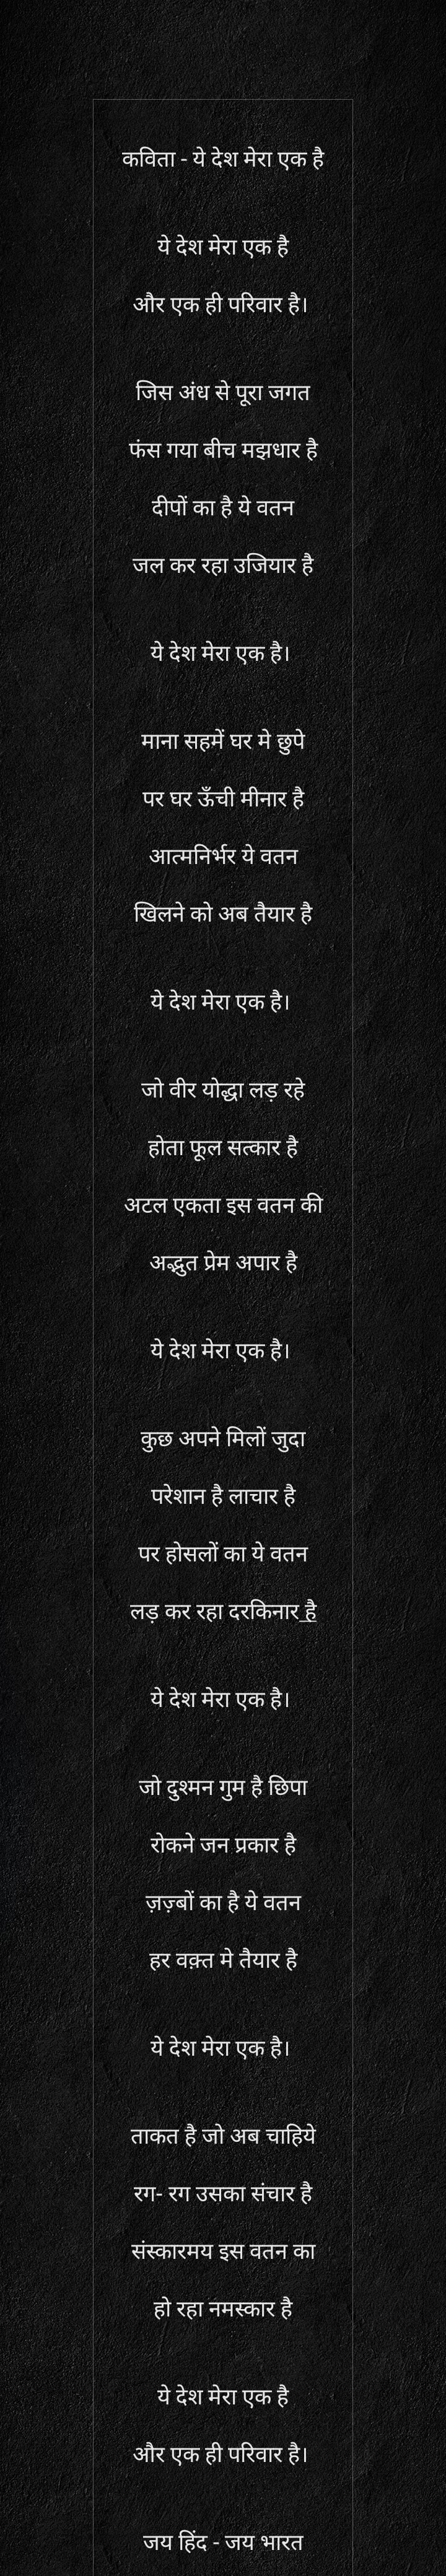 कविता - ये देश मेरा एक है
ये देश मेरा एक है
और एक ही परिवार है।
जिस अंध से पूरा जगत
फंस गया बीच मझधार है
दीपों का है ये वतन
जल कर रहा उजियार है
ये देश मेरा एक है।
माना सहमें घर मे छुपे
पर घर ऊँची मीनार है
आत्मनिर्भर ये वतन
खिलने को अब तैयार है
ये देश मेरा एक है।
जो वीर योद्धा लड़ रहे
होता फूल सत्कार है
अटल एकता इस वतन की
अद्भुत प्रेम अपार है
ये देश मेरा एक है।
कुछ अपने मिलों जुदा
परेशान है लाचार है
पर होसलों का ये वतन
लड़ कर रहा दरकिनार है
ये देश मेरा एक है।
जो दुश्मन गुम है छिपा
रोकने जन प्रकार है
ज़ज़्बों का है ये वतन
हर वक़्त मे तैयार है
ये देश मेरा एक है।
ताकत है जो अब चाहिये
रग- रग उसका संचार है
संस्कारमय इस वतन का
हो रहा नमस्कार है
ये देश मेरा एक है
और एक ही परिवार है।
जय हिंद - जय भारत